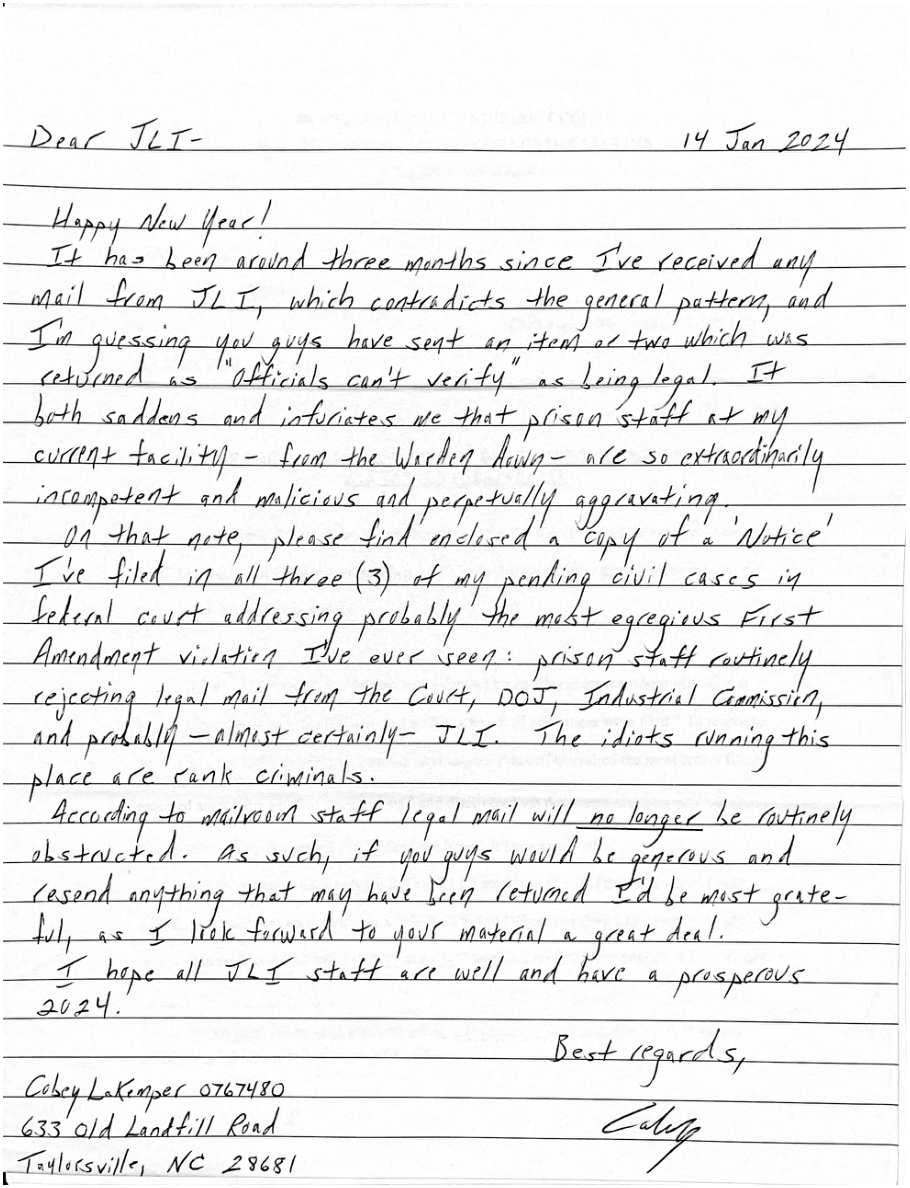 Dear JLI- 14 Jan 2024
Happy New Year!
It has been around three months since I've received any
mail from JLI, which contradicts the general pattern, and
I'm guessing you guys have sent an item or two which was
returned as "Officials can't verify" as being legal. It
both saddens and infuriates me that prison staff at my
current facility - from the Warden down - are so extraordinarily
incompetent and malicious and perpetually aggravating.
On that note, please find enclosed a copy of a 'Notice'
I've filed in all three (3) of my pending civil cases in
federal court addressing probably the most egregious First
Amendment violation I've ever seen: prison staff routinely
rejecting legal mail from the Court, DOJ, Industrial Commission,
and probably - almost certainly - JLI. The idiots running this
place are rank criminals.
According to mailroom staff legal mail will no longer be routinely
obstructed. As such, if you guys would be generous and
resend anything that may have been returned I'd be most grate-
ful, as I look forward to your material a great deal.
I hope all JLI staff are well and have a prosperous
2024.
Best regards,
Cobey LaKemper 0767480
633 Old Landfill Road
Cobey
Taylorsville, NC 28681